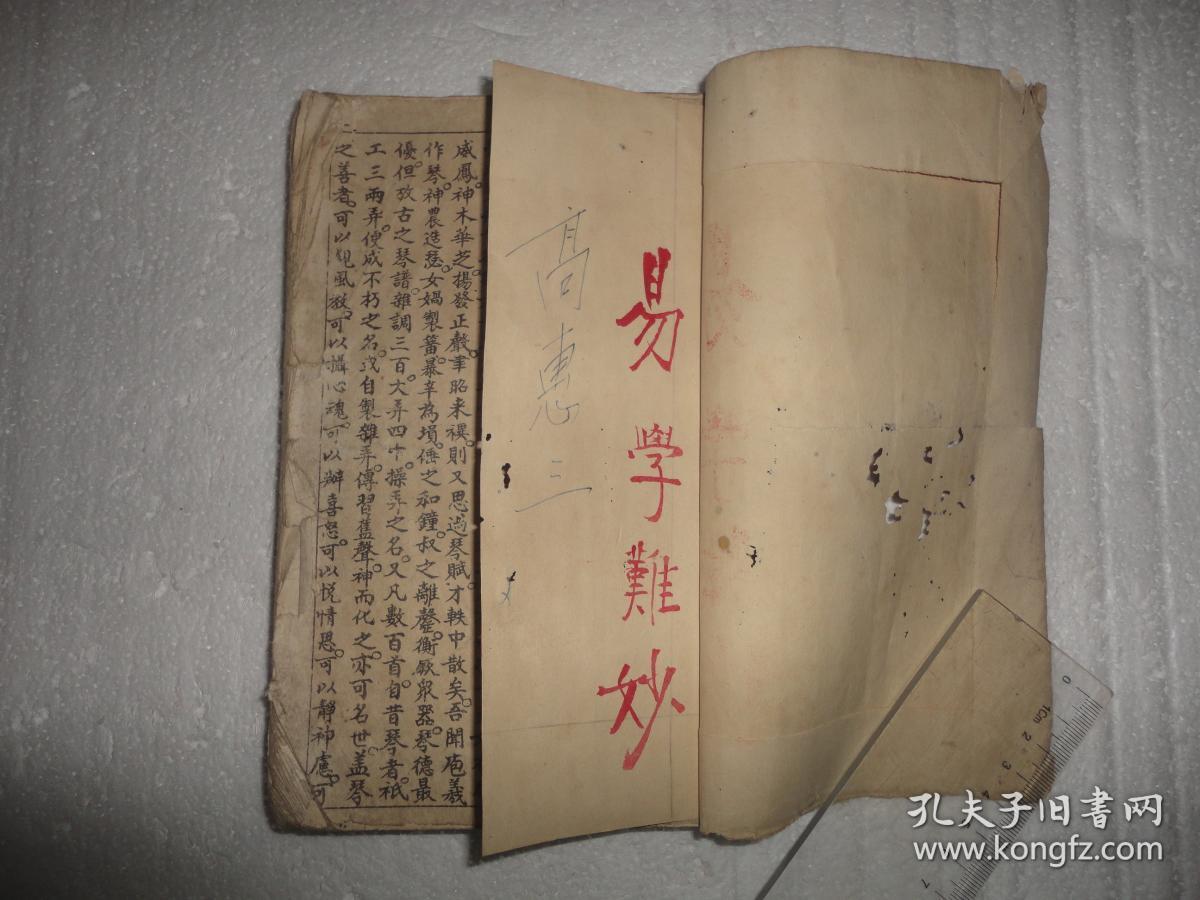 易學難妙
高惠三
威鳳神木華芝揚發正聲聿昭來禩則又思過琴賦才軼中散矣吾聞庖羲
作琴神農造瑟女媧製簧暴辛為塤倕之和鐘叔之離磬衡厥眾器琴德最
優但攷古之琴譜雜調三百大弄四十操弄之名又凡數百首自昔琴者祇
工三兩弄便成不朽之名或自製雜弄傳習舊聲神而化之亦可名世蓋琴
之善者可以觀風教可以攝心魂可以辨喜怒可以悅情思可以靜神慮可
二
0
1cm
2
3
4
7
孔夫子旧書网
www.kongfz.com